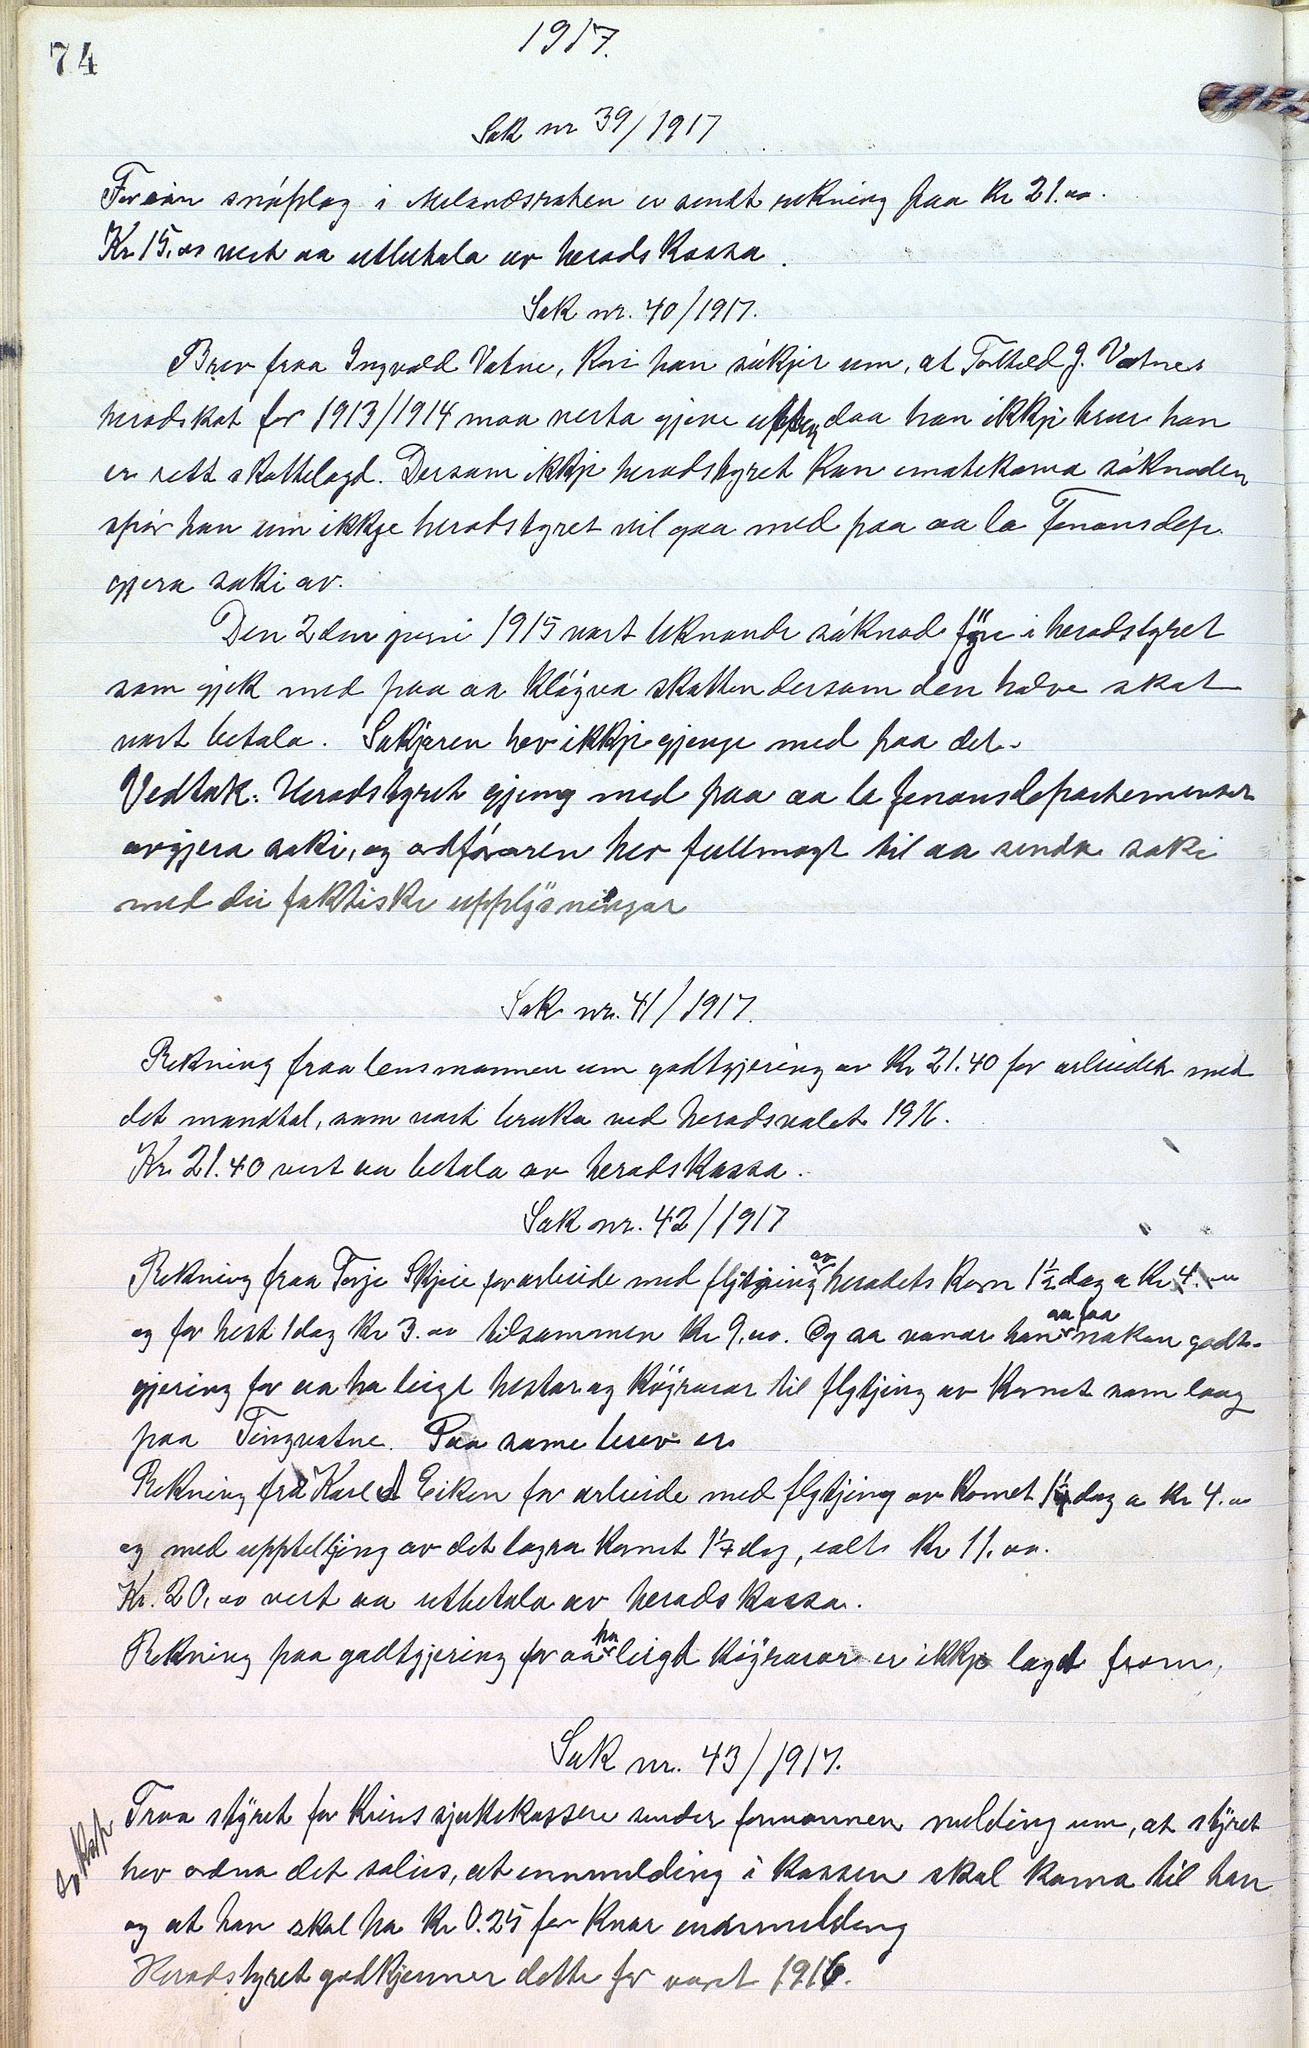 74
1917.
Sak nr 39/1917
For ein snöplog i Melandsroten er sendt rekning paa Kr 21.00.
Kr. 15.00 vert aa utbetala av heradskassa.
Sak nr. 40/1917.
Brev fraa Ingvald Vatne, kori han sökjer um, at Torkeld J. Vatnes
heradskat for 1913/1914 maa verta gjeve upp, daa han ikkje trur han
er rett skattelagd. Dersom ikkje heradstyret kan imøtekoma söknaden
spör han um ikkje heradstyret vil gaa med paa aa la Finansdep.
gjera saki av.
Den 2den juni 1915 vart liknande söknad fyre i heradstyret
som gjek med paa aa klöyva skatten dersom den halve skat
vart betala. Sökjaren hev ikkje gjenge med paa det.
Vedtak: Heradstyret gjeng med paa aa la finansdepartementet
avgjera saki, og ordföraren hev fullmagt til aa senda saki
med dei faktiske upplysningar
Sak nr. 41/1917.
Rekning fraa lensmannen um godtgjering av Kr 21.40 for arbeidet med
det mandtal, som vart bruka ved heradsvalet 1916.
Kr. 21.40 vert aa betala av heradskassa.
Sak nr. 42/1917
Rekning fraa Torje Skjeie for arbeide med flytjing av heradets korn 1½ dag a Kr 4.00
og for hest 1 dag Kr 3.00 tilsammen Kr 9.00. Og aa vonar han aa faa nokon godt-
gjering for aa ha leigt hestar og köyrarar til flytjing av kornet som laag
paa Tingvatne. Paa same brev er
Rekning frå Karl A Eiken for arbeide med flytjing av kornet 1½ dag a kr 4.00
og med uppteljing av det lagra kornet 1½ dag, ialt Kr 11.00.
Kr. 20.00 vert aa utbetala av heradskassa.
Rekning paa godtgjering for aa ha leigt köyrarar er ikkje lagt fram.
Sak nr. 43/1917.
Fraa styret for Krinssjukekassen sender formannen melding um, at styret
hev ordna det soleis, at innmelding i kassen skal koma til han
og at han skal ha Kr 0.25 for kvar innmelding
Heradstyret godkjenner dette for aaret 1916.